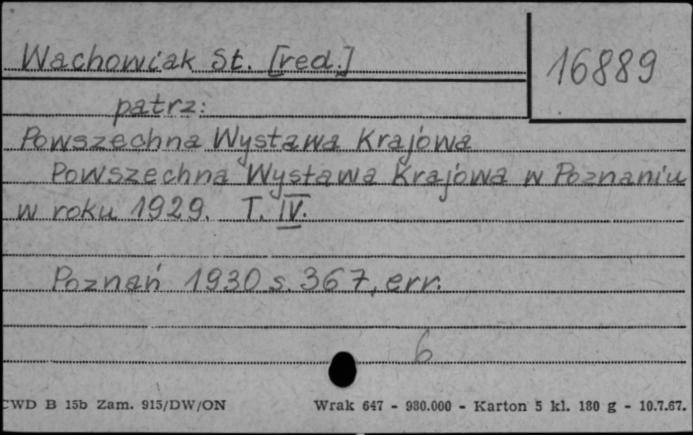 Wachowiak St. [red.]
16889
patrz:
Powszechna Wystawa Krajowa
Powszechna Wystawa Krajowa w Poznaniu
w roku 1929. T. IV.
Poznań 1930 s. 367, err.
6
CWD B 15b Zam. 915/DW/ON
Wrak 647 - 980.000 - Karton 5 kl. 180 g - 10.7.67.